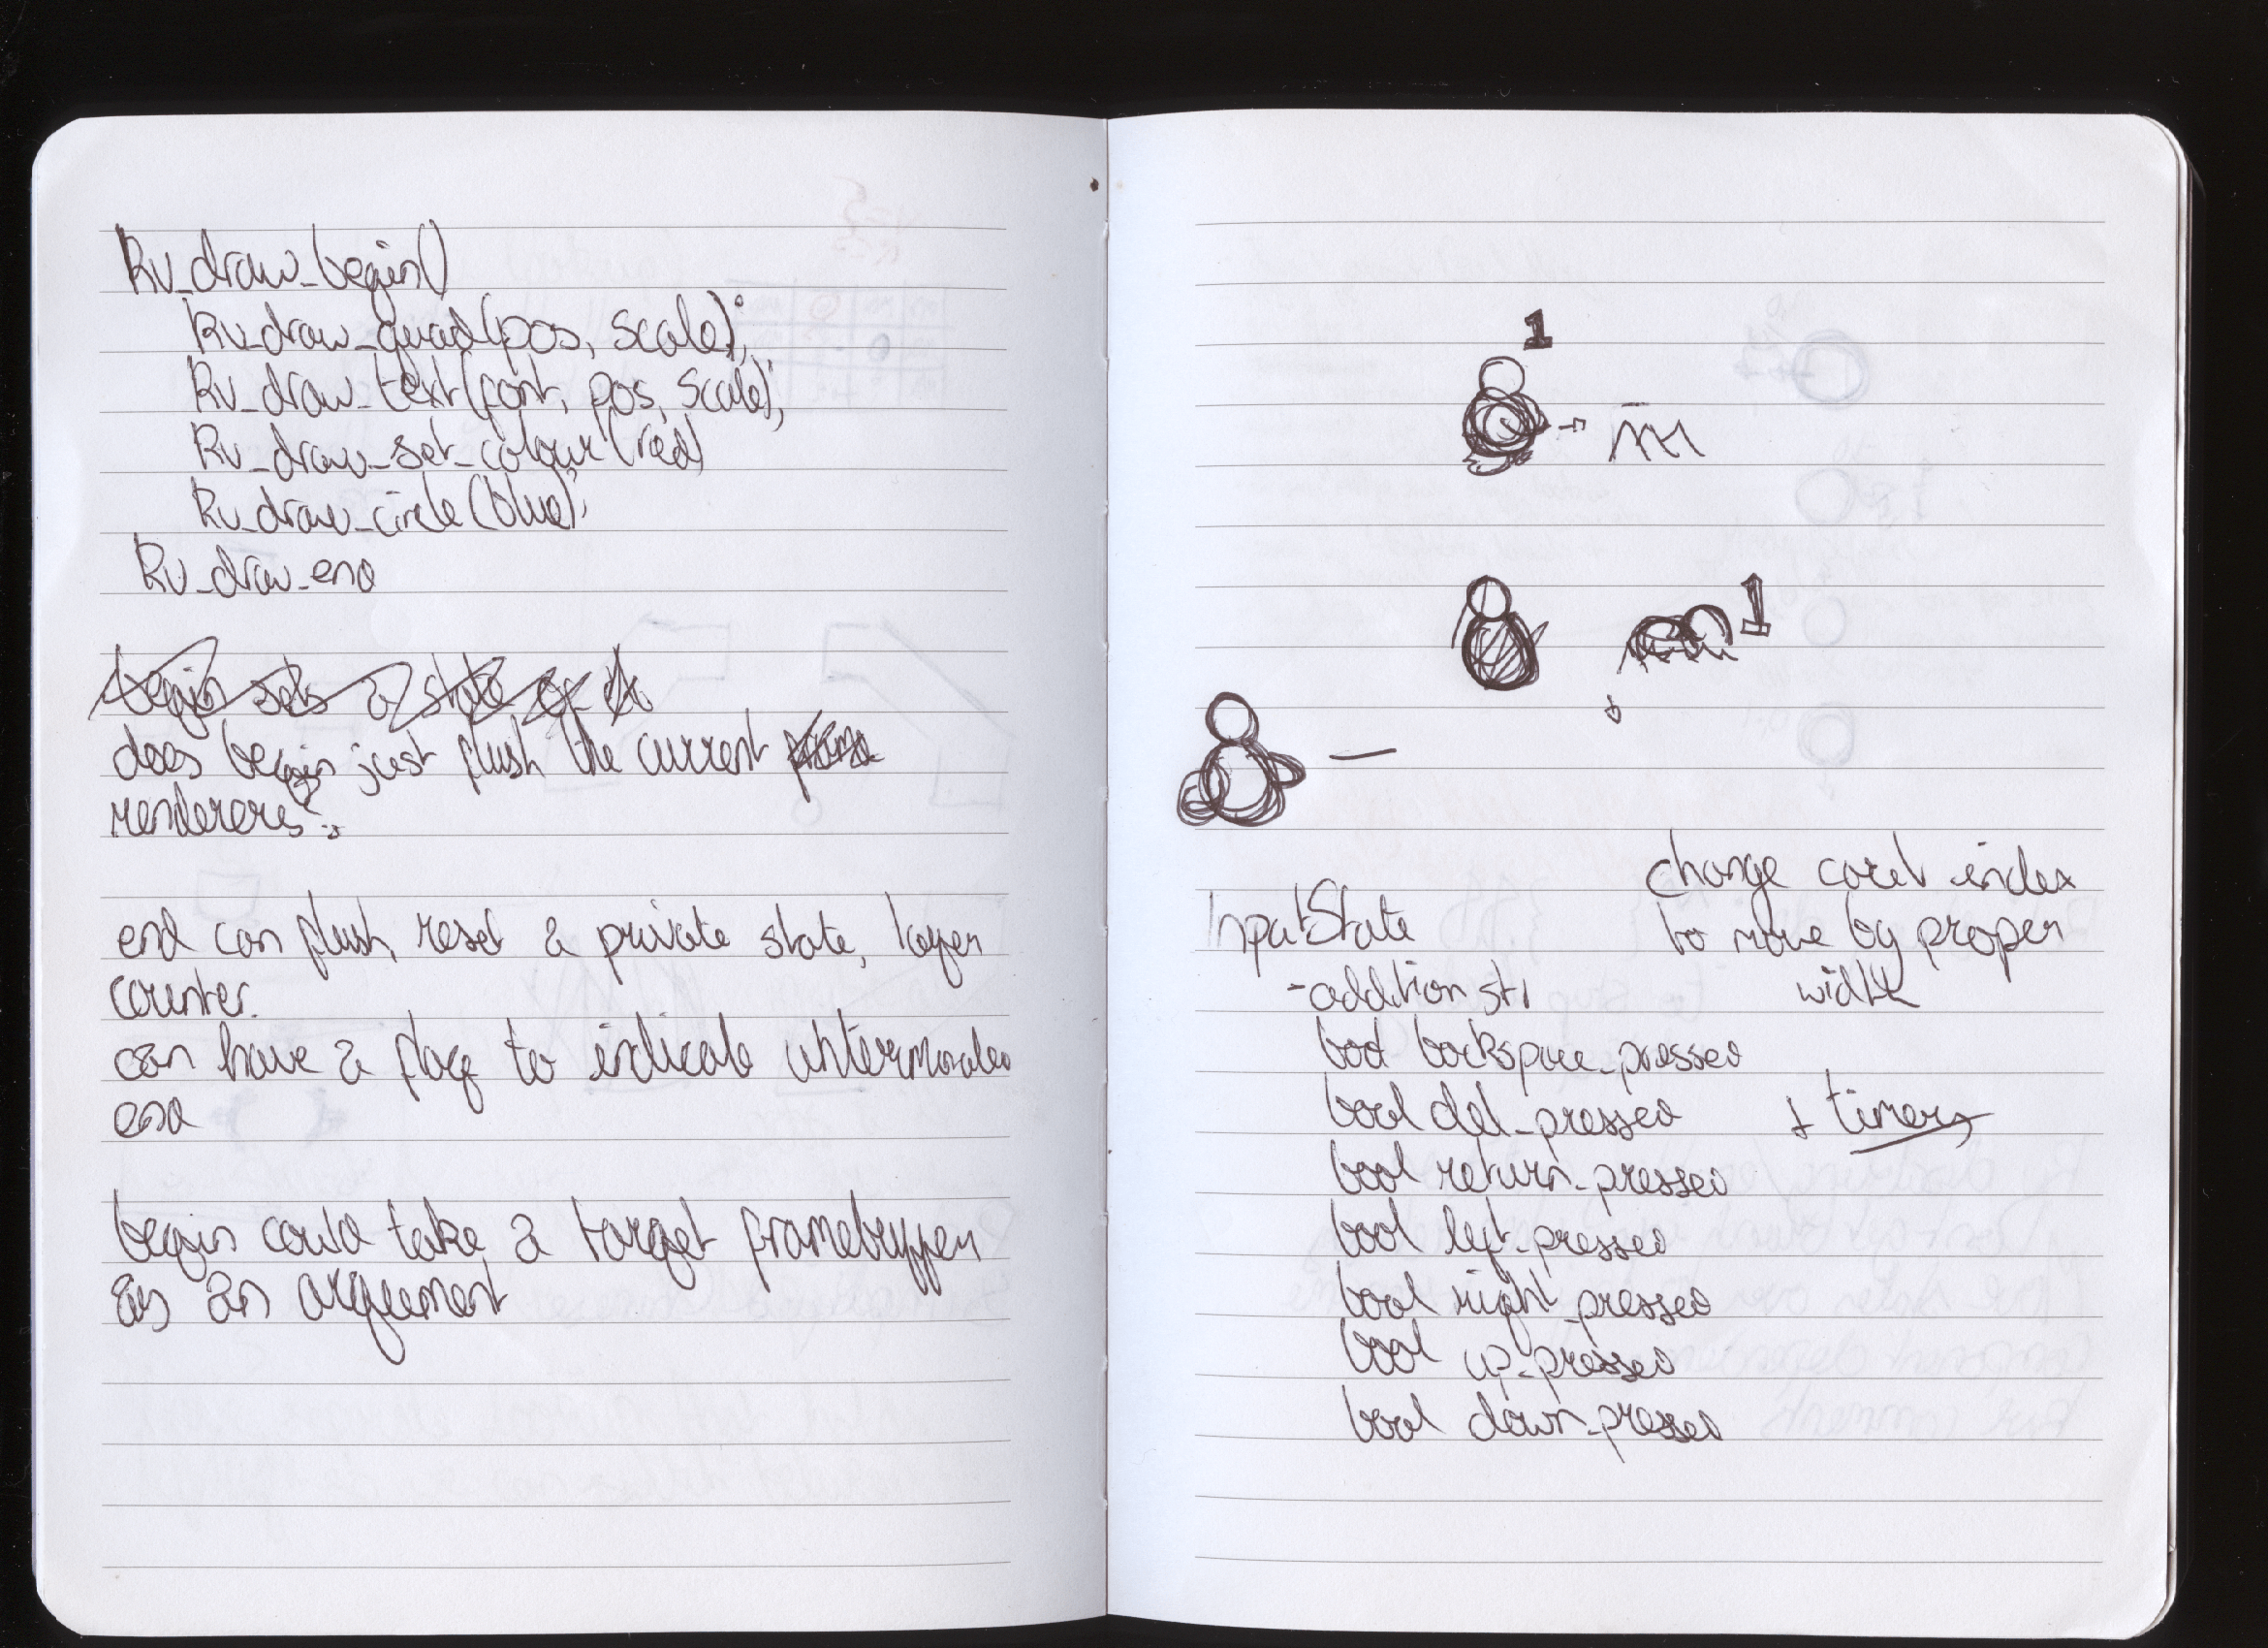 Rv_draw_begin()
Rv_draw_quad(pos, scale);
Rv_draw_text(font, pos, scale);
Rv_draw_set_colour(red)
Rv_draw_circle(blue);
Rv_draw_end
begin sets a state of
does begin just flush the current
renderers?
end can flush, reset a private state, layer
counter.
can have a flag to indicate
end
begin could take a target framebuffer
as an argument
1
1
change caret index
to move by proper
width
InputState
- addition str
bool backspace_pressed
bool del_pressed
+ timers
bool return_pressed
bool left_pressed
bool right_pressed
bool up_pressed
bool down_pressed